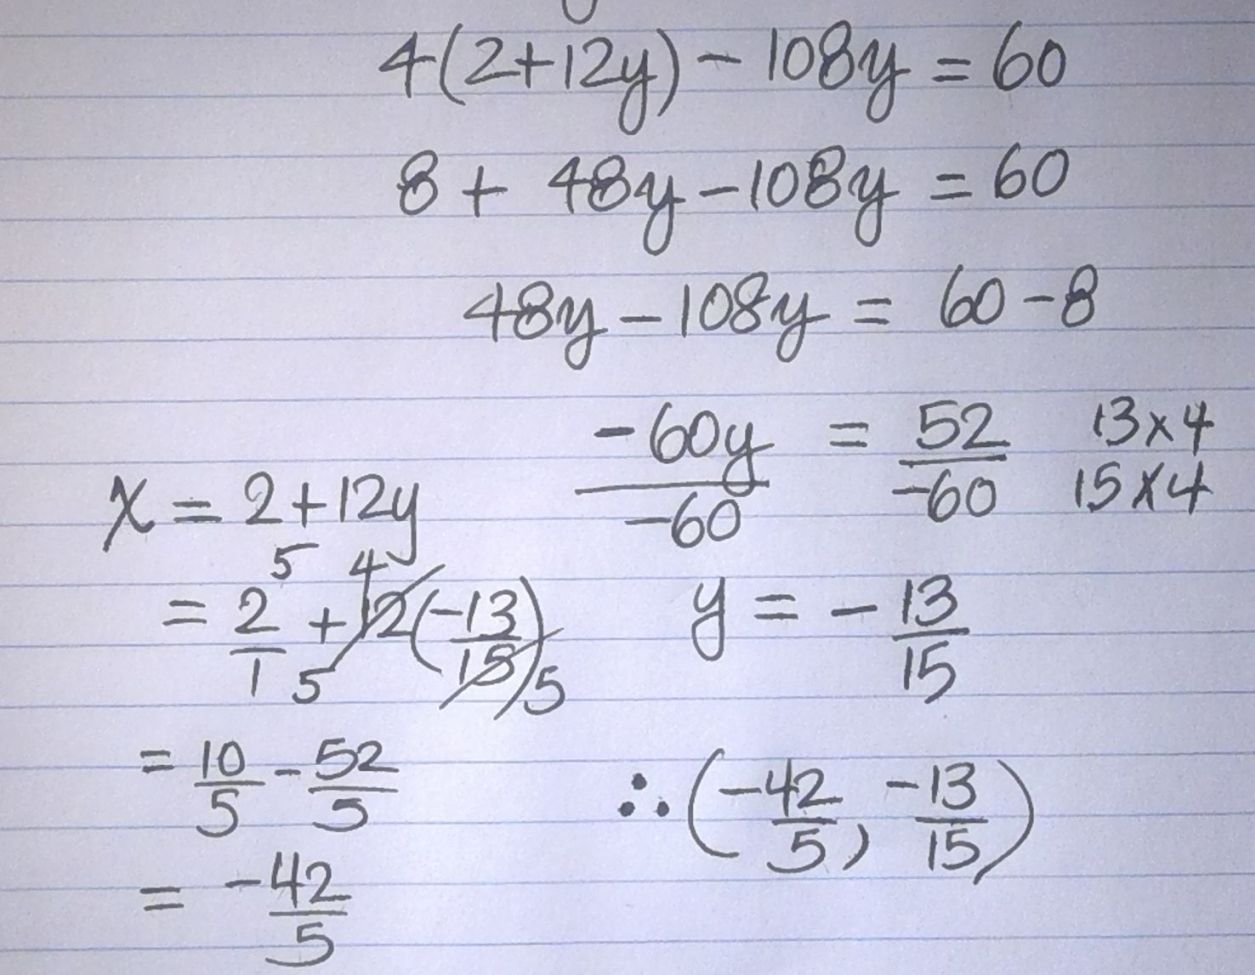 4(2+12y) - 108y = 60
8 + 48y - 108y = 60
48y - 108y = 60 - 8
-60y/-60 = 52/-60 13×4 15×4
x = 2+12y
= 2/1 5 5 + 12 4 (-13/15) 5
y = - 13/15
= 10/5 - 52/5
= -42/5
∴ (-42/5, -13/15)